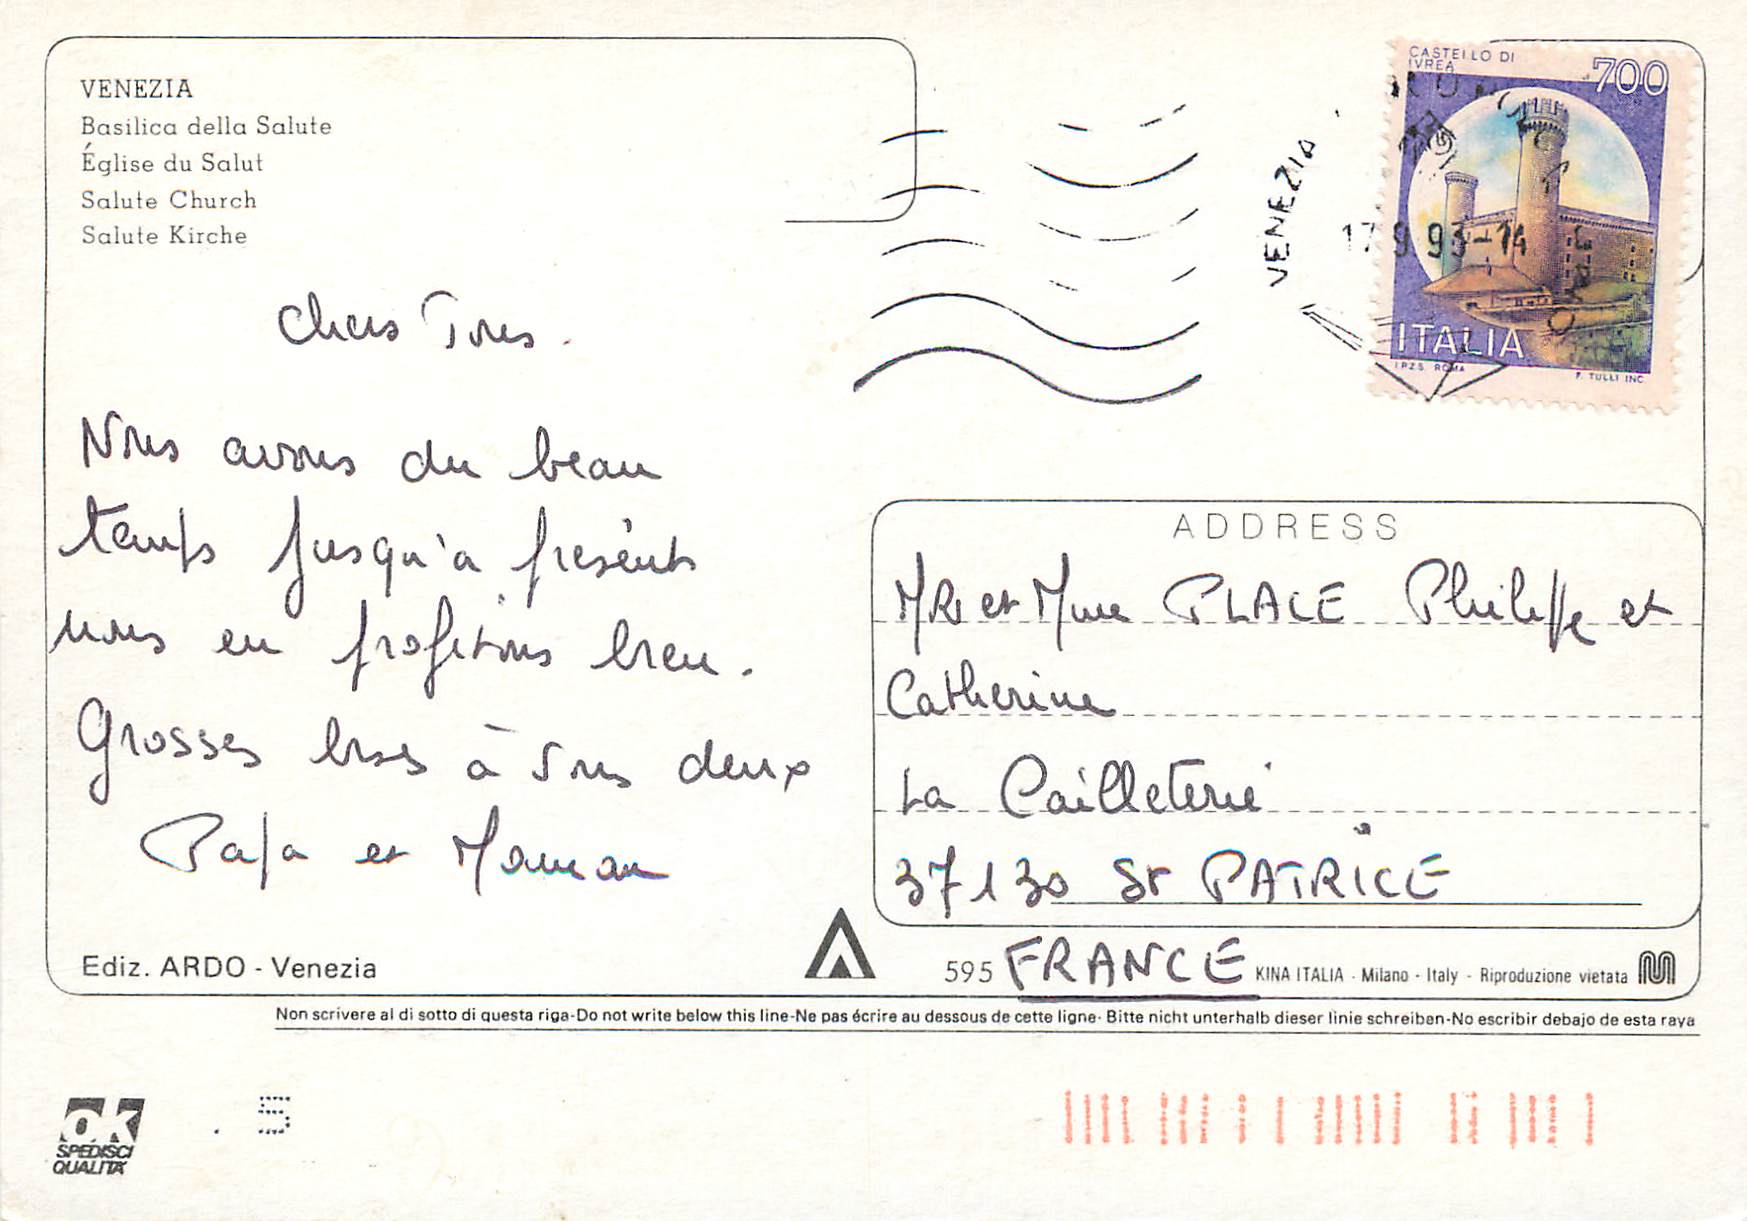 VENEZIA
Basilica della Salute
Église du Salut
Salute Church
Salute Kirche
Chers Tous.
Nous avons du beau
temps jusqu'à présent
nous en profitons bien.
Grosses bises à vous deux
Papa et Maman
Ediz. ARDO - Venezia
CASTELLO DI
IVREA
700
ITALIA
I.P.Z.S. ROMA
F. TULLI INC
VENEZIA
17 9 93-14
ADDRESS
MR et Mme PLACE Philippe et
Catherine
La Cailleterie
37130 St PATRICE
FRANCE
595
KINA ITALIA - Milano - Italy - Riproduzione vietata
Non scrivere al di sotto di questa riga-Do not write below this line-Ne pas écrire au dessous de cette ligne- Bitte nicht unterhalb dieser linie schreiben-No escribir debajo de esta raya
OK
SPEDISCI
QUALITÀ
. 5